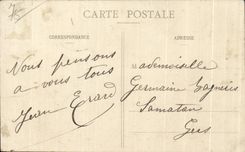 CARTE POSTALE
CORRESPONDANCE
ADRESSE
Nous pensons
a vous tous
Jean Erard
Mademoiselle
Germaine
Samatan
Gers